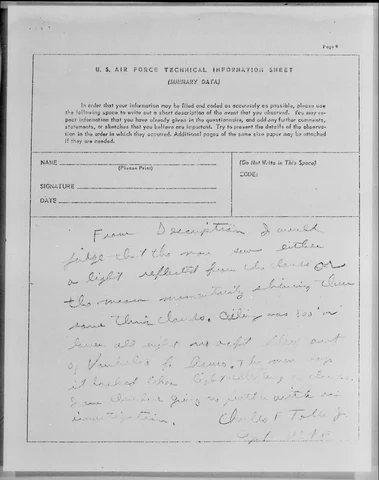 Page 9
U. S. AIR FORCE TECHNICAL INFORMATION SHEET
(SUMMARY DATA)
In order that your information may be filed and coded as accurately as possible, please use
the following space to write out a short description of the event that you observed. You may re-
peat information that you have already given in the questionnaire, and add any further comments,
statements, or sketches that you believe are important. Try to present the details of the observa-
tion in the order in which they occurred. Additional pages of the same size paper may be attached
if they are needed.
NAME
(Please Print)
SIGNATURE
DATE
(Do Not Write in This Space)
CODE:
From Description I would
judge that the man saw either
a light reflected from the clouds or
the moon momentarily shining thru
some thin clouds. Ceiling was
all night
of The man says
it looked like light on clouds.
I am going no further with
investigation.
Charles F.